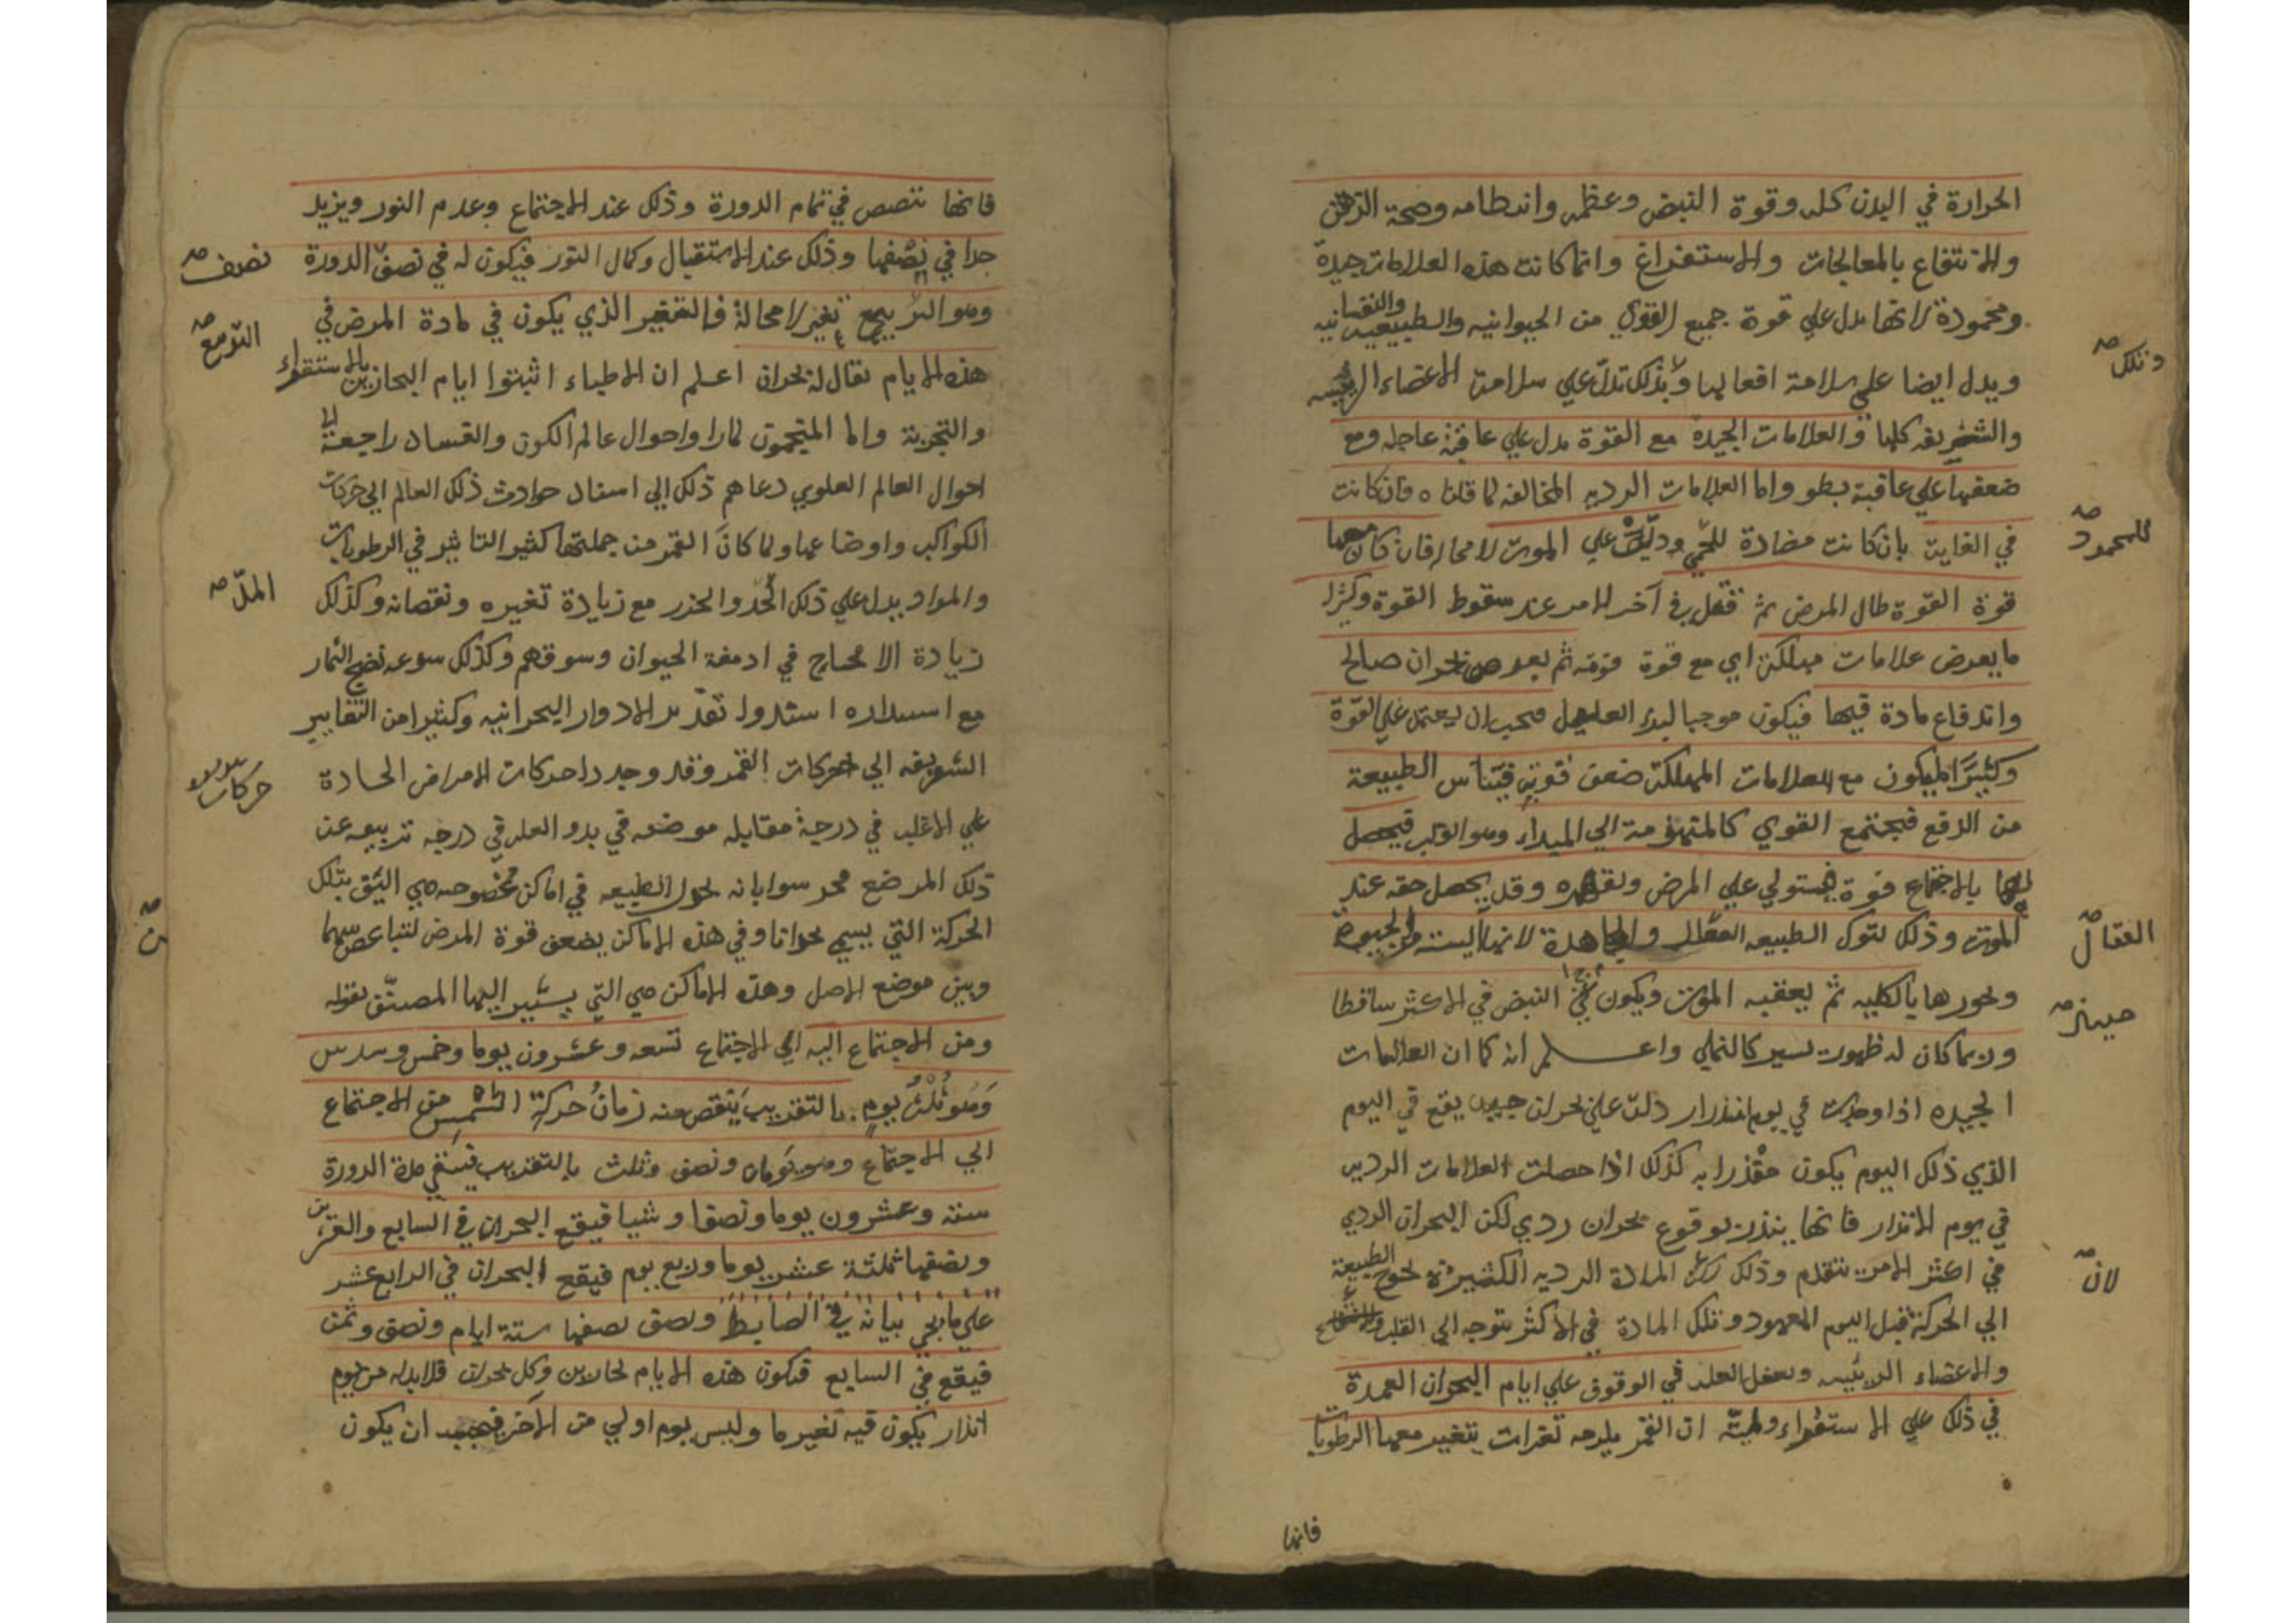 الحرارة في البدن كله وقوة النبض وعظمه وانتظامه وصحة الذهن
والانتفاع بالمعالجات والاستفراغ وانما كانت هذه العلامات جيدة
ومحمودة لانها تدل علي قوة جميع القوي من الحيوانيه والطبيعيه والنفسانيه
ويدل ايضا علي سلامة افعالها وبذلك تدل علي سلامة الاعضاء الرئيسه
وتلك
والشريفه كلها والعلامات الجيده مع القوة تدل علي عافية عاجله ومع
ضعفها علي عاقبة بطو واما العلامات الرديه المخالفه لما قلنا ه فان كانت
في الغايت بان كانت مضادة للحمي ودلت علي الموت لا محاله فان كان معها
للمحمود
قوة القوة طال المرض ثم قتل في آخر الامر عند سقوط القوة وكثيرا
ما يعرض علامات مهلكة اي مع قوة قويه ثم يعرض بحران صالح
واندفاع مادة فيها فيكون موجبا لبدء العليل فيجب ان يعتمد علي القوة
وكثيرا ما يكون مع العلامات المهلكة ضعف قوية فيتأس الطبيعة
من الدفع فيجتمع القوي كالمتهزمة الي المبداء وهو القلب فيحصل
لها بالاجتماع قوة فيستولي علي المرض وتقهره وقد يحصل خفه عند
الموت وذلك لترك الطبيعه القتال والمجاهدة لانها
القتال
وخورها بالكليه ثم يعقبه الموت ويكون النبض في الاكثر ساقطا
حينئذ
وربما كان له ظهور يسير كالنملي واعلم انه كما ان العلامات
الجيده اذا وجدت في يوم انذار دلت علي بحران جيد يقع في اليوم
الذي ذلك اليوم يكون منذرا به كذلك اذا حصلت العلامات الرديه
في يوم الانذار فانها ينذر بوقوع بحران ردي لكن البحران الردي
في اكثر الامر يتقدم وذلك لان المادة الرديه الكثيرة تحوج الطبيعة
لان
الي الحركة قبل اليوم المعهود وتلك المادة في الاكثر يتوجه الي القلب
والاعضاء الرئيسه ولعل العله في الوقوف علي ايام البحران العمدة
في ذلك علي الاستقراء ان القمر يلزمه تغيرات يتغير معها الرطوبات
فانها
فانها تنقص في تمام الدورة وذلك عند الاجتماع وعدم النور ويزيد
جدا في نصفها وذلك عند الاستقبال وكمال النور فيكون له في نصف الدورة
نصف
وهو التربيع تغير لا محالة فالتغير الذي يكون في مادة المرض في
التربيع
هذه الايام يقال له بحران اعلم ان الاطباء اثبتوا ايام البحارين بالاستقراء
والتجربة واما المنجمون لما راوا احوال عالم الكون والفساد راجعة الي
احوال العالم العلوي دعاهم ذلك الي اسناد حوادث ذلك العالم الي حركات
الكواكب واوضاعها ولما كان القمر من جملتها كثير التاثير في الرطوبات
والمواد يدل علي ذلك المد والجزر مع زيادة تغيره ونقصانه وكذلك
المدّ
زيادة الامخاخ في ادمغة الحيوان وسوقهم وكذلك سرعه نضج الثمار
مع استداره اسندوا تقدير الادوار البحرانيه وكثيرا من التغايير
الشريفه الي حركات القمر وقد وجدوا حركات الامراض الحادة
حركات
علي الاغلب في درجة مقابله موضعه في بدو العله وفي درجه تربيعه عن
ذلك الموضع بان تحرك الطبيعه في اماكن مخصوصه هي اليق بتلك
الحركة التي يسمي بحرانا وفي هذه الاماكن يضعف قوة المرض لتباعد
وبين موضع الاصل وهذه الاماكن هي التي يشير اليها المصنف بقوله
ومن الاجتماع اليه الي الاجتماع تسعه وعشرون يوما وخمس وسدس
وهو ثلث يوم بالتقريب ينقص منه زمان حركة الشمس من الاجتماع
الي الاجتماع وهو يومان ونصف وثلث بالتقريب فيبقي مدة الدورة
ستة وعشرون يوما ونصفا وشيا فيقع البحران في السابع والعشرين
ونصفها ثلثة عشر يوما وربع يوم فيقع البحران في الرابع عشر
علي ما يجي بيانه في الضابط ونصف نصفها ستة ايام ونصف وثمن
فيقع في السابع فيكون هذه الايام بحارين وكل بحران فلابد له من يوم
انذار يكون فيه تغير ما وليس يوم اولي من الآخر فيجب ان يكون